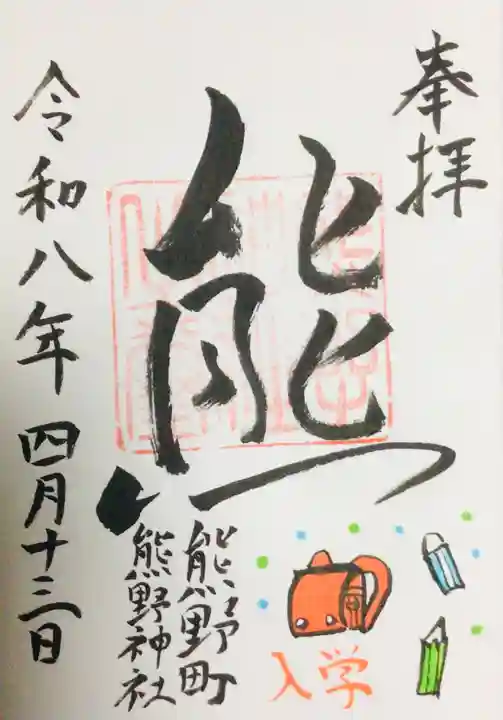 奉拝
熊
熊野町
熊野神社
令和八年四月十三日
入学